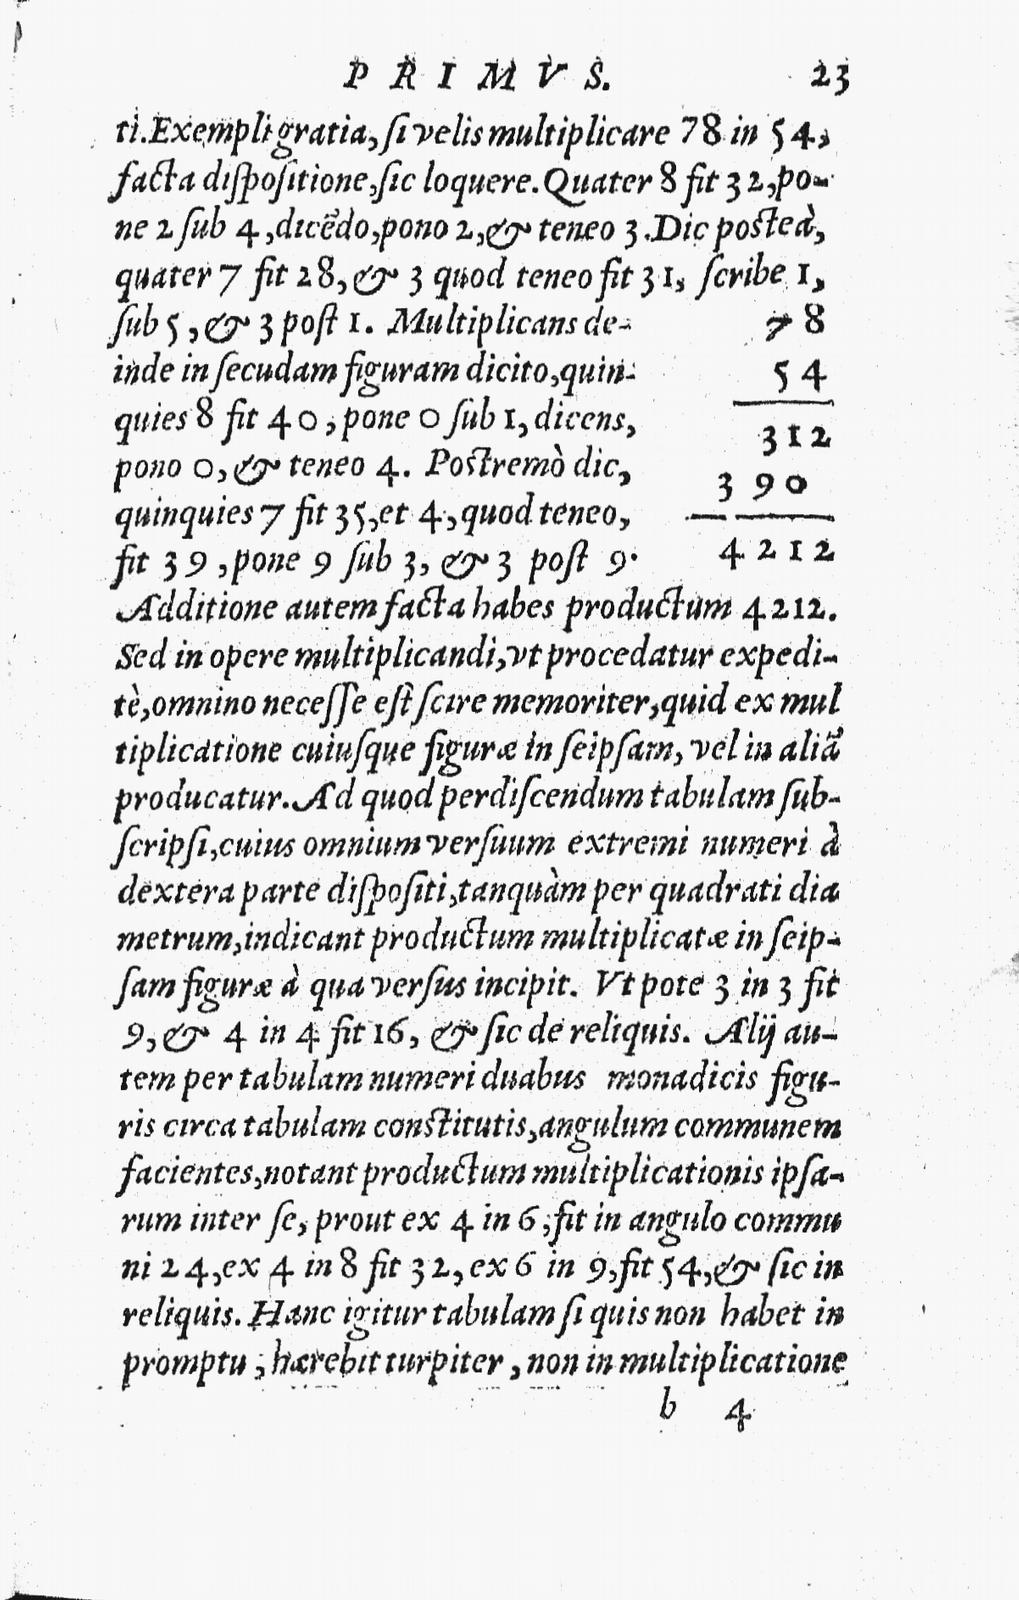 P R I M V S. 23
ti. Exempli gratia, ſi velis multiplicare 78 in 54,
facta diſpoſitione, ſic loquere. Quater 8 fit 32, po-
ne 2 ſub 4, dicẽdo, pono 2, & teneo 3. Dic posteà,
quater 7 fit 28, & 3 quod teneo fit 31, ſcribe 1,
ſub 5, & 3 poſt 1. Multiplicans de- 78
inde in ſecudam figuram dicito, quin- 54
quies 8 fit 40, pone 0 ſub 1, dicens, 312
pono 0, & teneo 4. Postremò dic, 3 90
quinquies 7 fit 35, et 4, quod teneo,
fit 39, pone 9 ſub 3, & 3 poſt 9. 4212
Additione autem facta habes productum 4212.
Sed in opere multiplicandi, vt procedatur expedi-
tè, omnino neceſſe eſt ſcire memoriter, quid ex mul
tiplicatione cuiuſque figuræ in ſeipſam, vel in aliã
producatur. Ad quod perdiſcendum tabulam ſub-
ſcripſi, cuius omnium verſuum extremi numeri à
dextera parte diſpoſiti, tanquàm per quadrati dia
metrum, indicant productum multiplicatæ in ſeip-
ſam figuræ à qua verſus incipit. Vt pote 3 in 3 fit
9, & 4 in 4 fit 16, & ſic de reliquis. Alij au-
tem per tabulam numeri duabus monadicis figu-
ris circa tabulam constitutis, angulum communem
facientes, notant productum multiplicationis ipſa-
rum inter ſe, prout ex 4 in 6, fit in angulo commu
ni 24, ex 4 in 8 fit 32, ex 6 in 9, fit 54, & ſic in
reliquis. Hanc igitur tabulam ſi quis non habet in
promptu, hærebit turpiter, non in multiplicatione
b 4